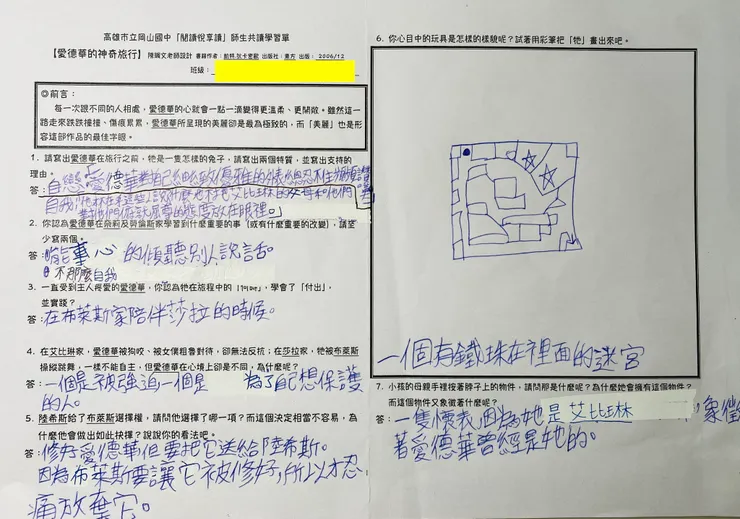 高雄市立岡山國中「閱讀悅享讀」師生共讀學習單
【愛德華的神奇旅行】 陳珮文老師設計 書籍作者:凱特.狄卡密歐 出版社:東方 出版: 2006/12
班級:
◎前言:
每一次跟不同的人相處,愛德華的心就會一點一滴變得更溫柔、更開敞。雖然這一
路走來跌跌撞撞、傷痕累累,愛德華所呈現的美麗卻是最為極致的,而「美麗」也是形
容這部作品的最佳字眼。
1. 請寫出愛德華在旅行之前,牠是一隻怎樣的兔子,請寫出兩個特質,並寫出支持的
理由。
答:自戀:愛德華對自己細緻優雅的
自我:他
2. 你認為愛德華在奈莉及勞倫斯家學習到什麼重要的事(或有什麼重要的改變),請至
少寫兩個。
答:能 重心 的傾聽別人說話。
不那麼自我
3. 一直受到主人疼愛的愛德華,你認為牠在旅程中的何時,學會了「付出」,
並實踐?
答:在布萊斯家陪伴莎拉的時候。
4. 在艾比琳家,愛德華被狗咬、被女僕粗魯對待,卻無法反抗;在莎拉家,牠被布萊斯
操縱跳舞,一樣不能自主,但愛德華在心境上卻是不同,為什麼呢?
答:一個是被強迫一個是 為了自己想保護
的人。
5. 陸希斯給了布萊斯選擇權,請問他選擇了哪一項?而這個決定相當不容易,為
什麼他會做出如此抉擇?說說你的看法吧。
答:修好愛德華但要把它送給陸希斯。
因為布萊斯要讓它被修好,所以才忍
痛放棄它。
6. 你心目中的玩具是怎樣的樣貌呢?試著用彩筆把「牠」畫出來吧。
一個有鐵珠在裡面的迷宮
7. 小孩的母親手裡按著脖子上的物件,請問那是什麼呢?為什麼她會擁有這個物件?
而這個物件又象徵著什麼呢?
答:一隻懷表,因為她 是 艾比琳 ,象徵
著愛德華曾經是她的。